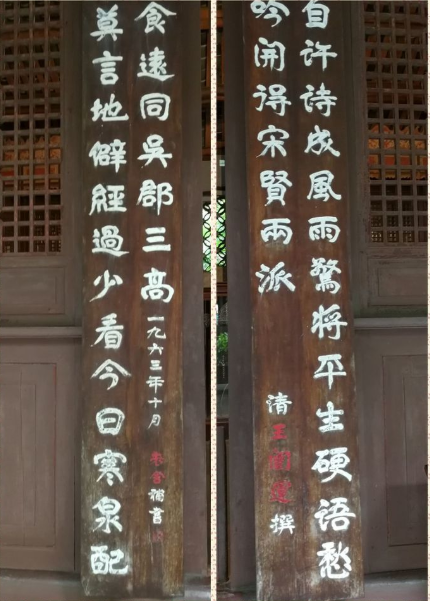 自许诗成风雨驚将平生硬语愁
吟開得宋賢兩派
清王闿運撰
莫言地僻經過少看今日寒泉配
食遠同吳郡三高
一九六三年十月
補書